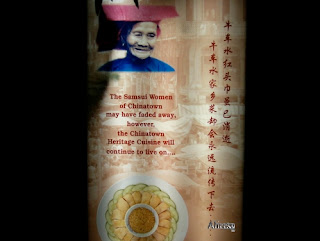 The Samsui Women
of Chinatown
may have faded away,
however,
the Chinatown
Heritage Cuisine will
continue to live on....
牛车水红头巾虽已消逝
牛车水家乡菜却会永远流传下去